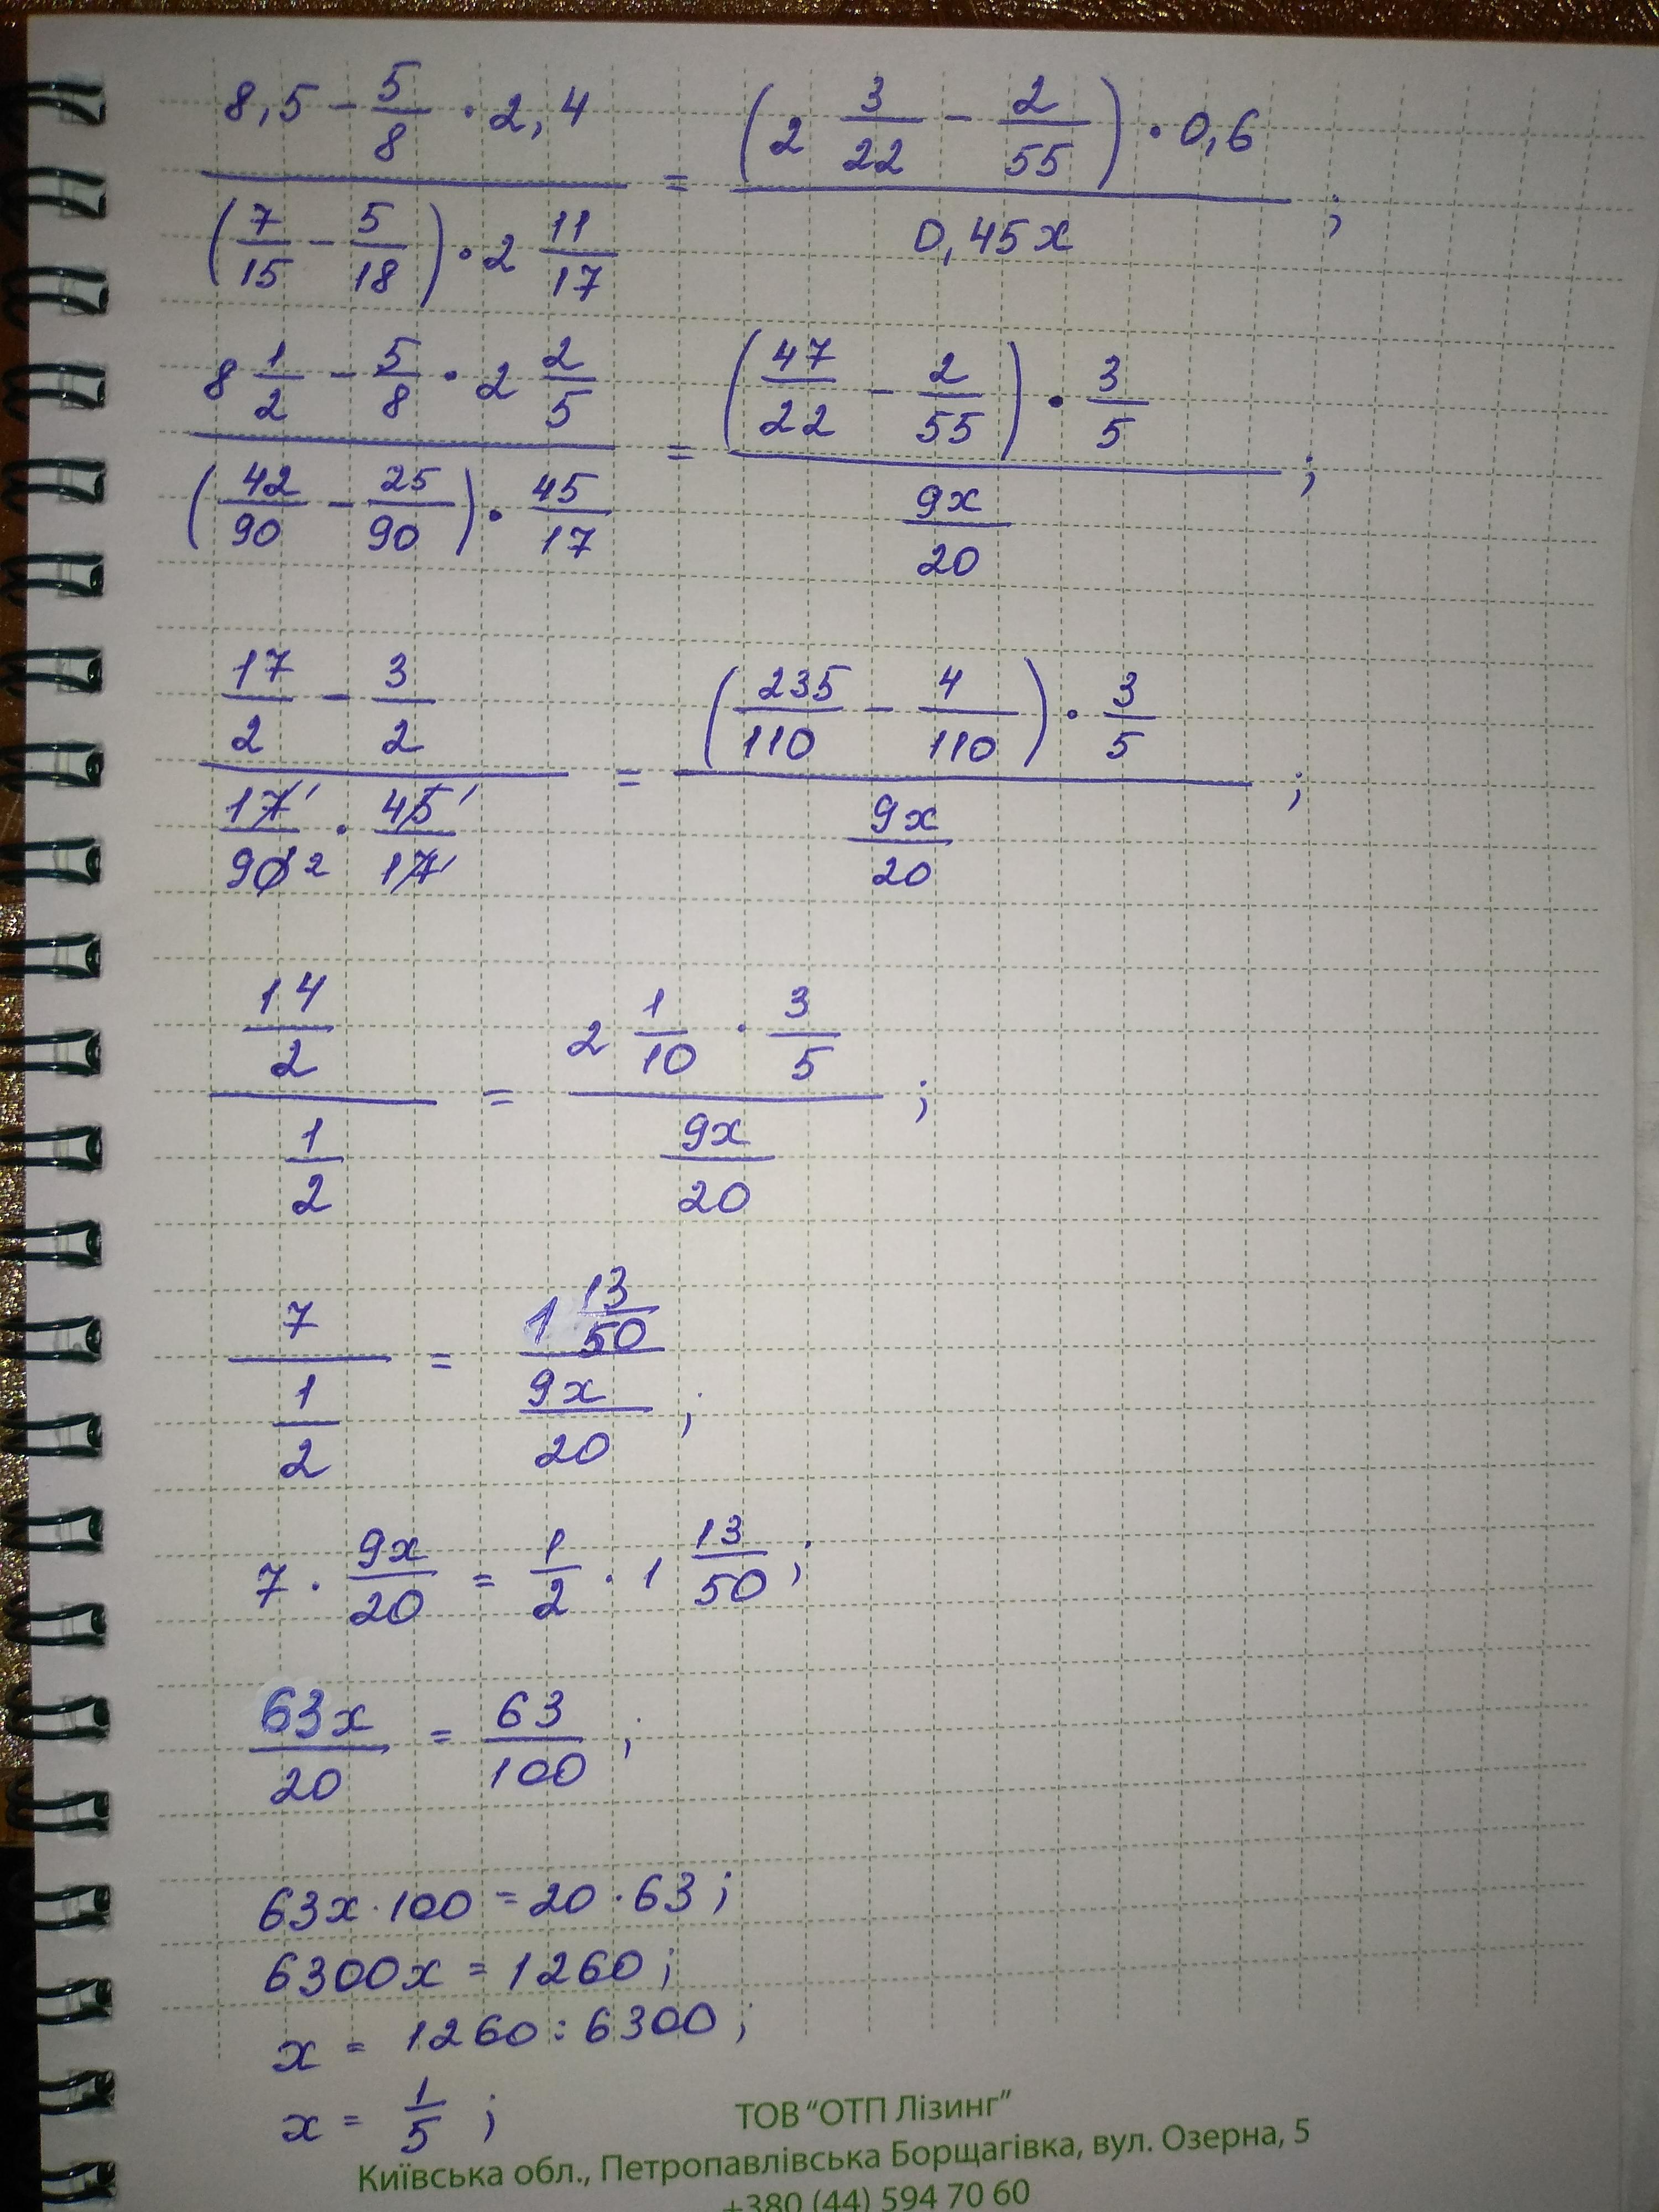 8,5 - 5/8 · 2,4 / (7/15 - 5/18) · 2 11/17 = (2 3/22 - 2/55) · 0,6 / 0,45x ;
8 1/2 - 5/8 · 2 2/5 / (42/90 - 25/90) · 45/17 = (47/22 - 2/55) · 3/5 / 9x/20 ;
17/2 - 3/2 / 17 1/90 2 · 45 1/17 1 = (235/110 - 4/110) · 3/5 / 9x/20 ;
14/2 / 1/2 = 2 1/10 · 3/5 / 9x/20 ;
7 / 1/2 = 1 13/50 / 9x/20 ;
7 · 9x/20 = 1/2 · 1 13/50 ;
63x/20 = 63/100 ;
63x · 100 = 20 · 63 ;
6300x = 1260 ;
x = 1260 : 6300 ;
x = 1/5 ;
ТОВ “ОТП Лізинг”
Київська обл., Петропавлівська Борщагівка, вул. Озерна, 5
+380 (44) 594 70 60